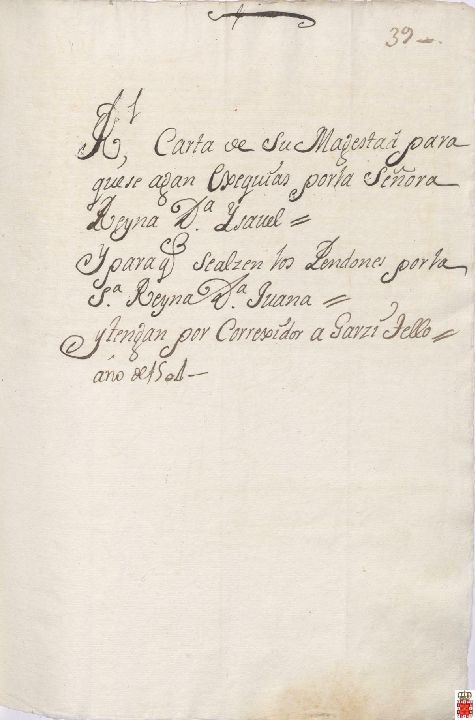 39
Rl, Carta de Su Magestad para
que se agan Exequias por la Señora
Reyna D.ª Ysauel =
Y para q̃ se alzen los Pendones por la
S.ª Reyna D.ª Juana =
y tengan por Correxidor a Garzi Tello =
año de 1504 -